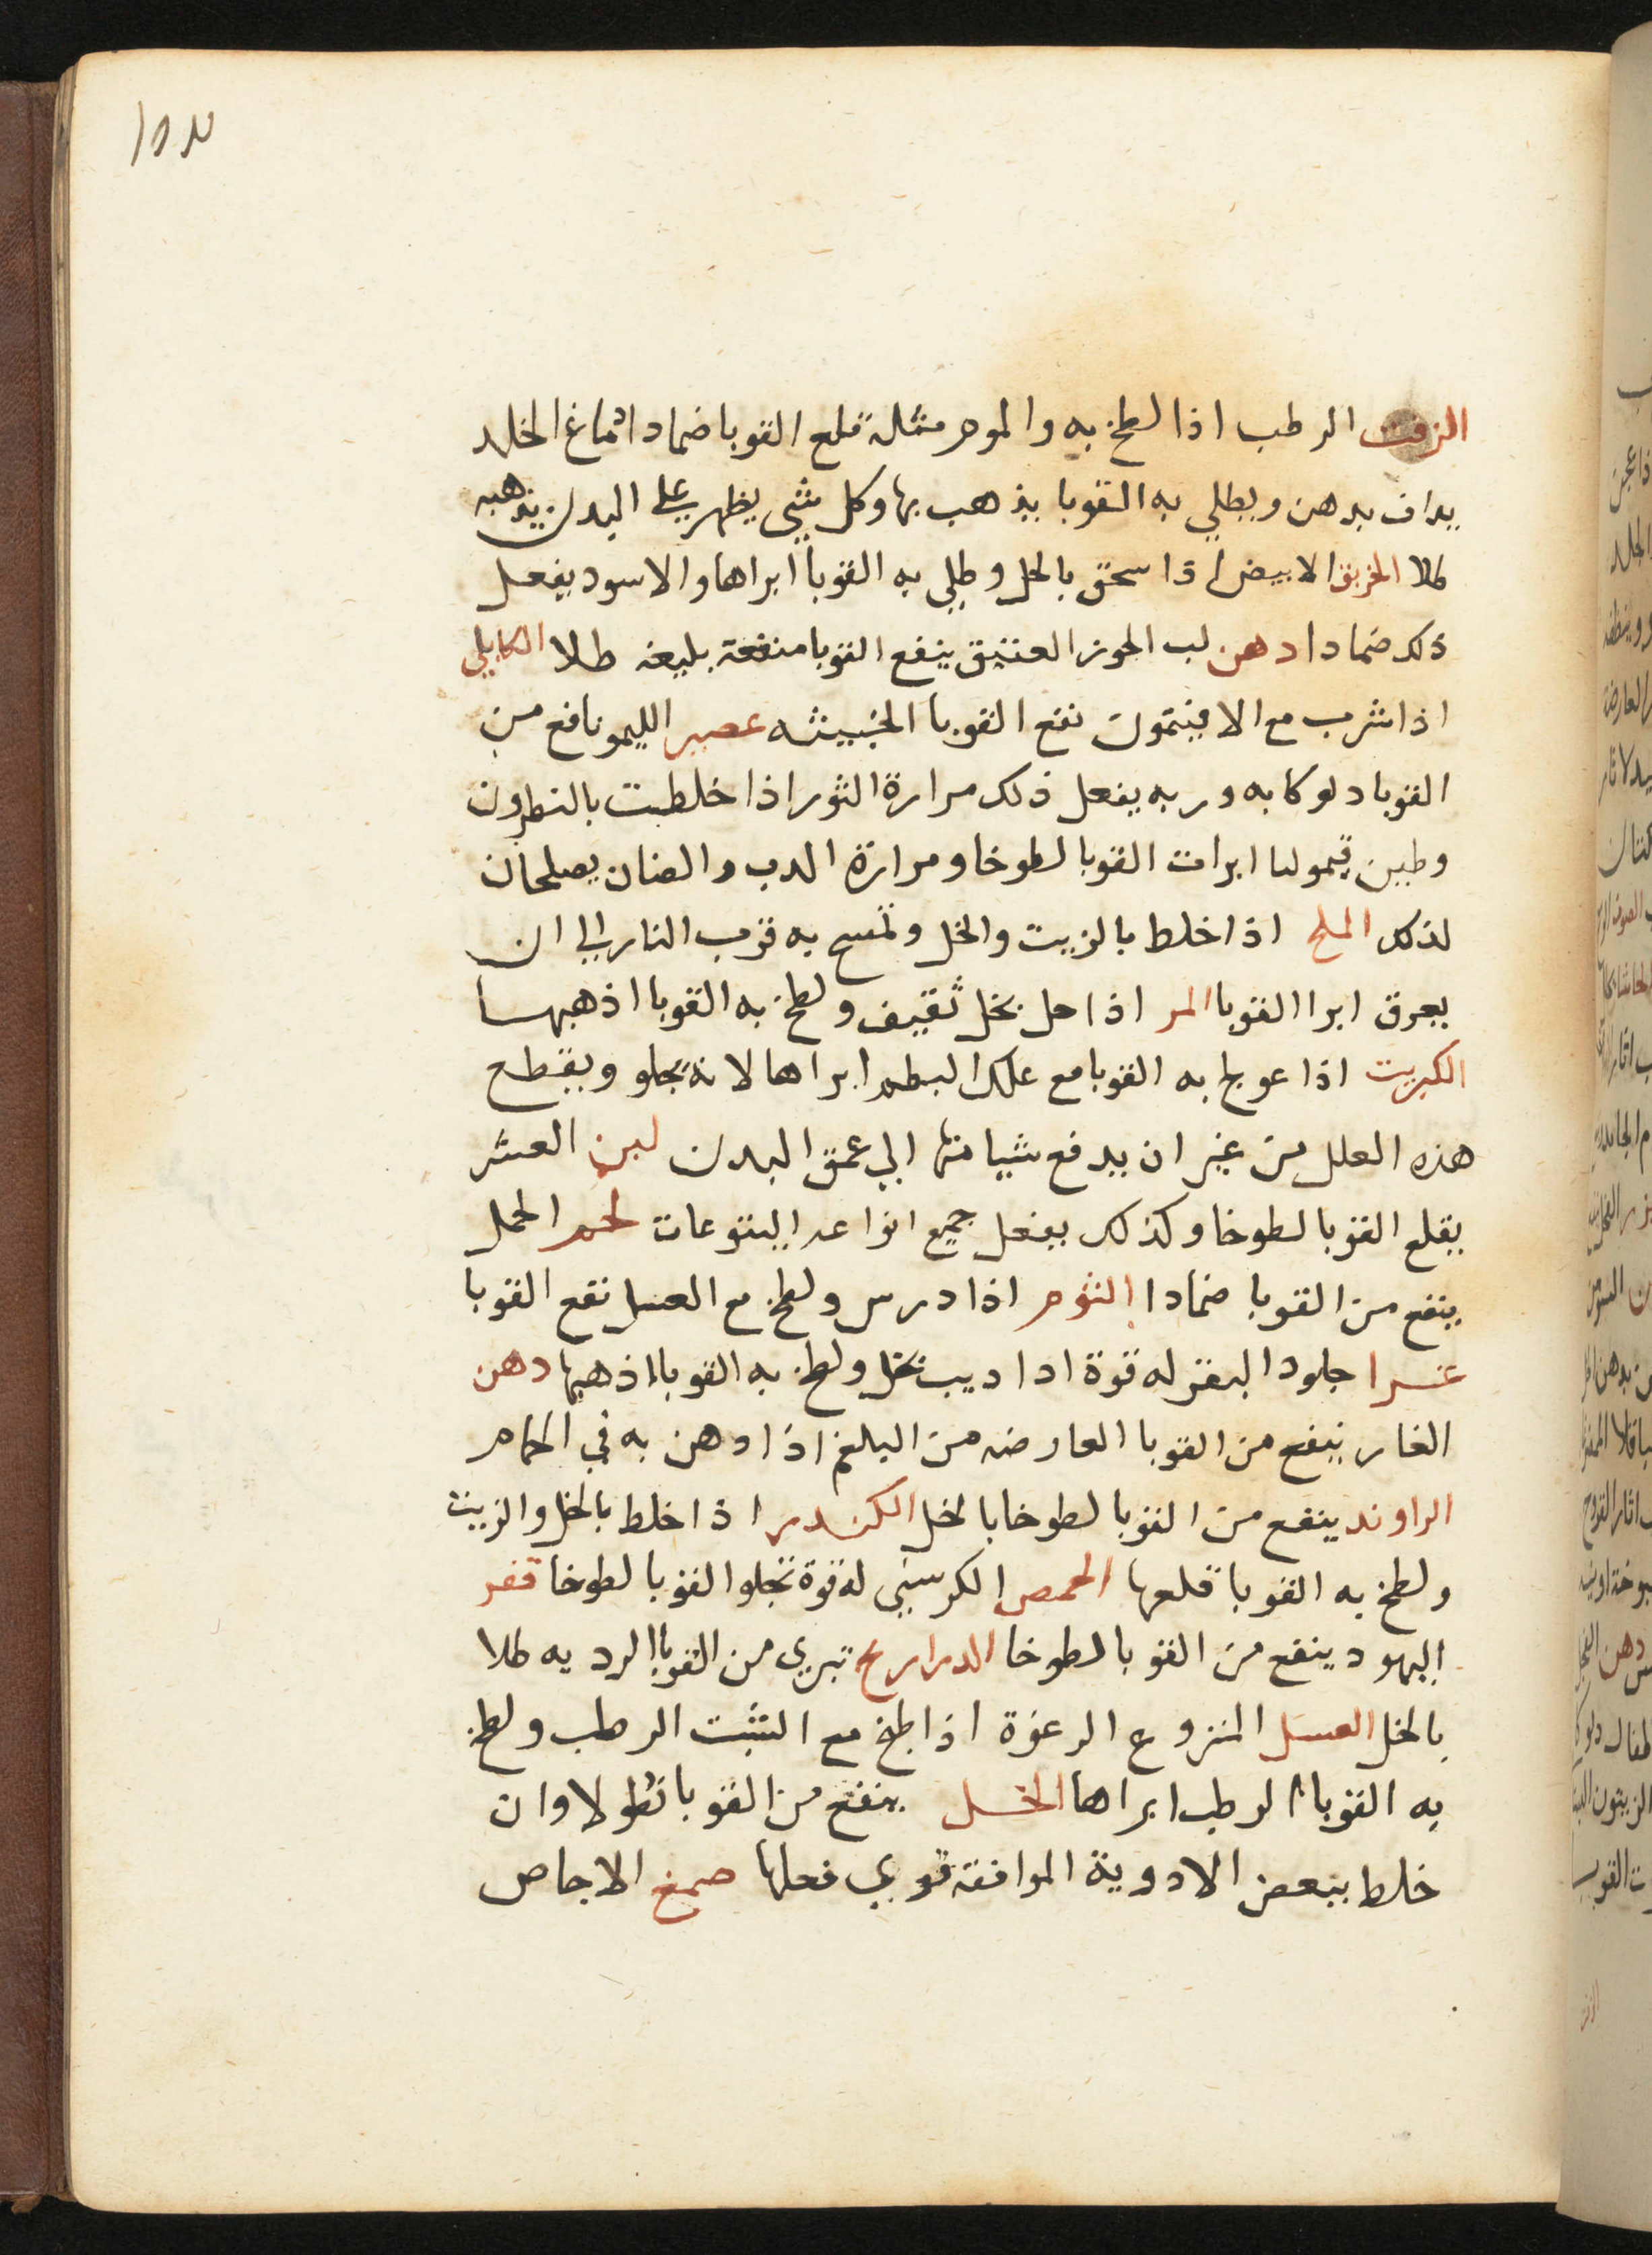 الزفت الرطب اذا لطخ به والموم مثله قلع القوبا ضمادا دماغ الخلد
يداف بدهن ويطلي به القوبا يذهب بها وكل شي يظهر علي البدن يذهبه
طلا الخربق الابيض اذا سحق بالخل وطلي به القوبا ابراها والاسود يفعل
ذلك ضمادا دهن لب الجوز العتيق ينفع القوبا منفعة بليغه طلا الكابلي
اذا شرب مع الافيتمون نفع القوبا الخبيثه عصير الليمو نافع من
القوبا دلوكا به وربه يفعل ذلك مرارة الثور اذا خلطت بالنطرون
وطين قيموليا ابرات القوبا لطوخا ومرارة الدب والضان يصلحان
لذلك الملح اذا خلط بالزيت والخل وتمسح به قرب النار الي ان
يعرق ابرا القوبا المر اذا حل بخل ثقيف ولطخ به القوبا اذهبها
الكبريت اذا عولج به القوبا مع علك البطم ابراها لانه يجلو ويقطع
هذه العلل من غير ان يدفع شيا منها الي عمق البدن لبن العشر
يقلع القوبا لطوخا وكذلك يفعل جميع انواعه اليتوعات لحم الحمل
ينفع من القوبا ضمادا الثوم اذا درس ولطخ مع العسل نفع القوبا
غرا جلود البقر له قوة اذا اديب بخل ولطخ به القوبا اذهبها دهن
الغار ينفع من القوبا العارضه من البلغم اذا دهن به في الحمام
الراوند ينفع من القوبا لطوخا بالخل الكندر اذا خلط بالخل والزيت
ولطخ به القوبا قلعها الحمص الكرسني له قوة تجلوا القوبا لطوخا قفر
اليهود ينفع من القوبا لطوخا الدراريح تبري من القوبا الرديه طلا
بالخل العسل المنزوع الرغوة اذا طبخ مع الشبت الرطب ولطخ
به القوبا الرطب ابراها الخل ينفع من القوبا نطولا وان
خلط ببعض الادوية الموافقة قوي فعلها صمغ الاجاص